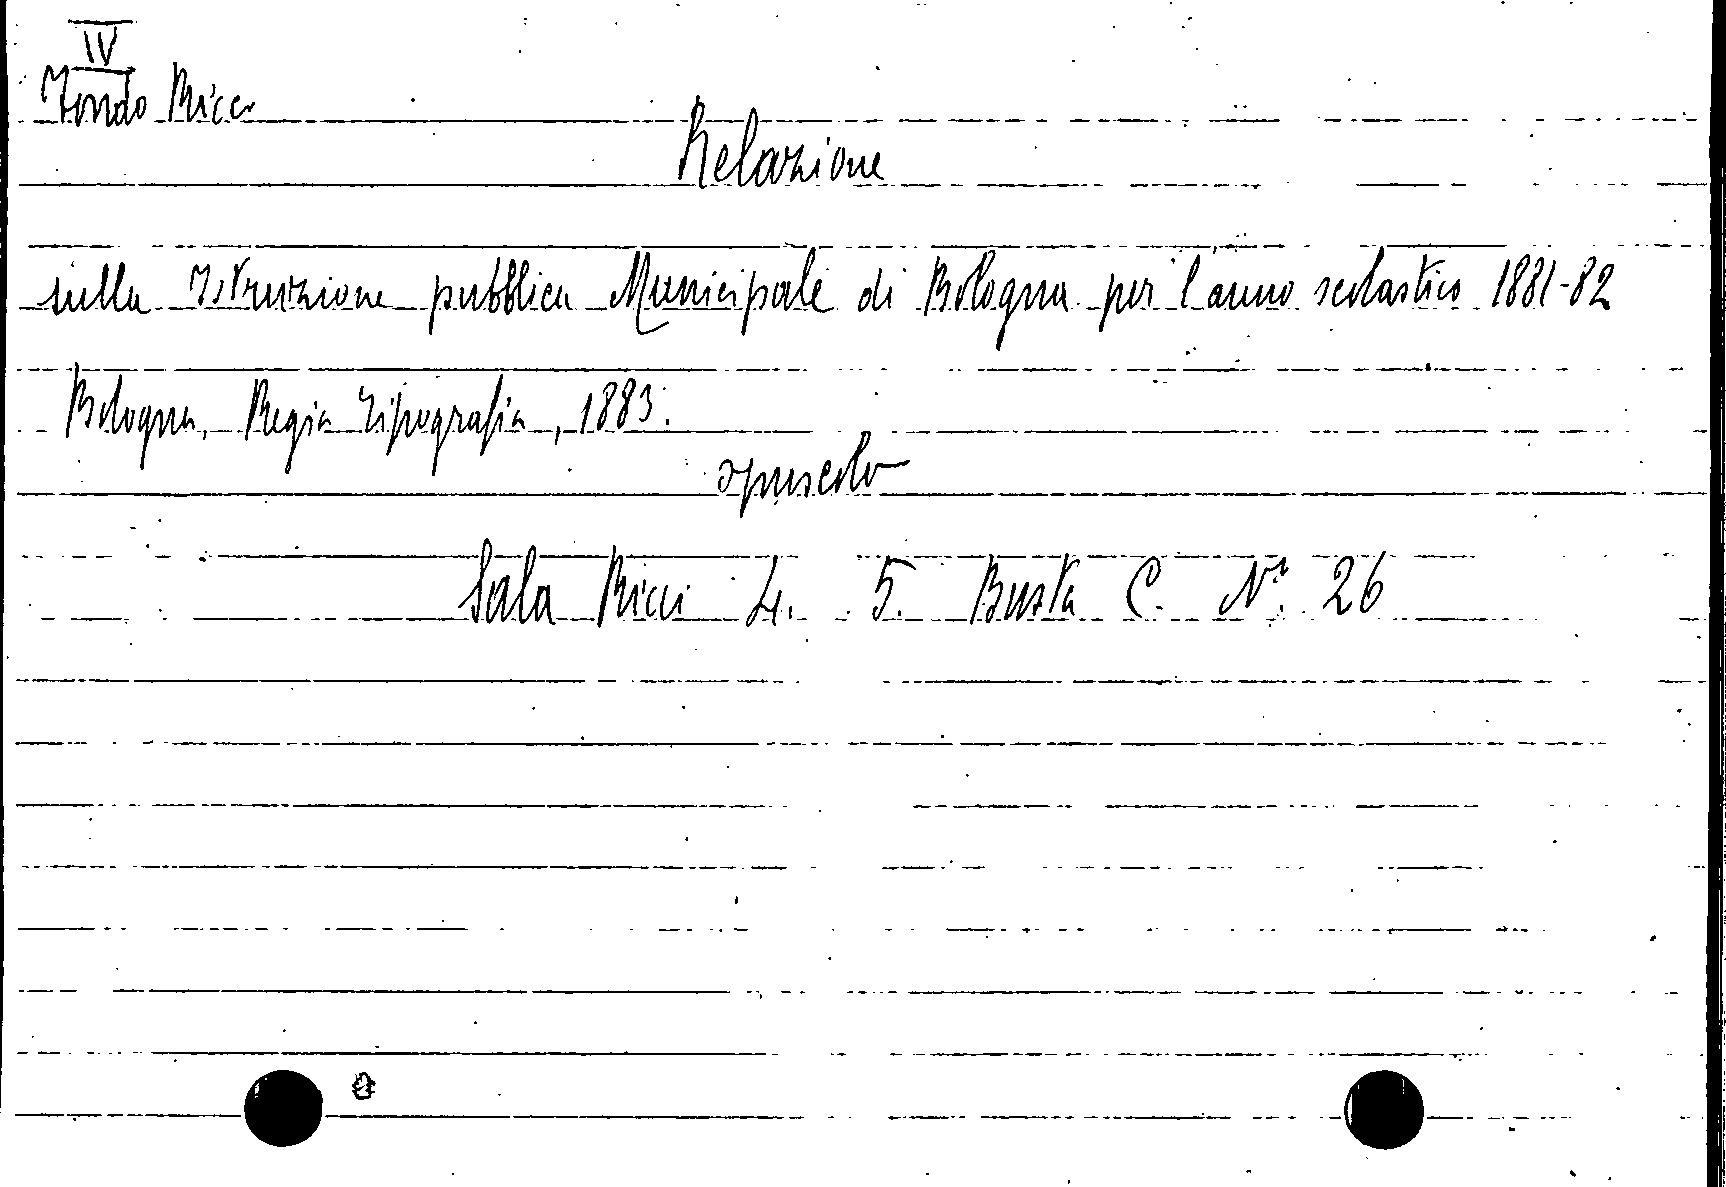 IV
Fondo Ricci
Relazione
sulla Istruzione pubblica Municipale di Bologna per l'anno scolastico 1881-82
Bologna, Regia Tipografia, 1883.
opuscolo
Sala Ricci 4. 5. Busta C. Nr. 26